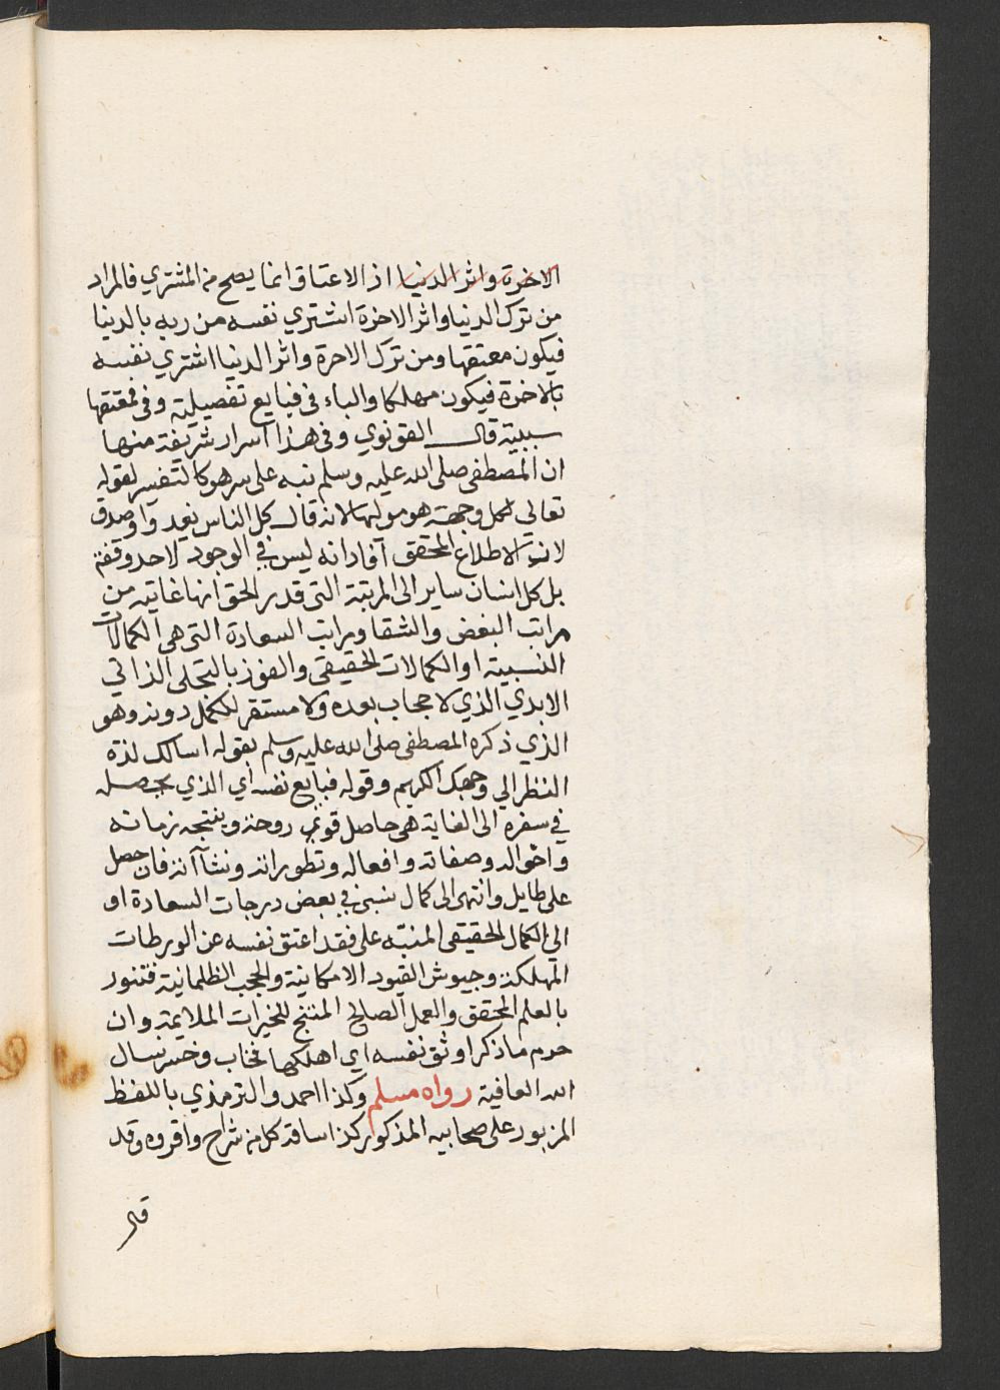 الاخرة واثر الدنيا اذ الاعتاق انما يصح من المشتري فالمراد
من ترك الدنيا واثر الاخرة اشتري نفسه من ربه بالدنيا
فيكون معتقها ومن ترك الاحرة واثر الدنيا اشتري نفسه
بالاخرة فيكون مهلكا والباء في فبايع تفصيلية وفي فمعتقها
سببية قال القونوي وفي هذا اسرار شريفة منها
ان المصطفى صلى الله عليه وسلم نبه على سر هو كالتفسير لقوله
تعالي لكل وجهة هو موليها لانه قال كل الناس يغدوا وصدق
لانه الاطلاع المحقق افاد انه ليس في الوجود لاحد وقفة
بل كل انسان ساير الى المرتبة التى قدر الحق انها غايته من
مراتب البغض والشقا ومراتب السعادة التى هي الكمالات
النسبية او الكمالات الحقيقى والفوز بالتجلى الذاتي
الابدي الذي لا حجاب بعده ولا مستقر للكمل دونه وهو
الذي ذكره المصطفى صلى الله عليه وسلم بقوله اسالك لذة
النظر الي وجهك الكريم وقوله فبايع نفسه اي الذي يحصله
في سفره الى الغاية هي حاصل قوتي روحه وينتجه زمانه
واحواله وصفاته وافعاله وتطوراته ونشآته فان حصل
على طايل وانتهى الى كمال نسبي في بعض درجات السعادة او
الي الكمال الحقيقى المنبه على فقد اعتق نفسه عن الورطات
المهلكة وجيوش القيود الامكانية والحجب الظلمانية فتنور
بالعلم المحقق والعمل الصالح المنتج للخيرات الملايمة وان
حرم ما ذكر اوثق نفسه اي اهلكها فخاب وخسر نسال
الله العافية رواه مسلم وكذا احمد والترمذي باللفظ
المزبور على صحابيه المذكور كذا ساقه كل من شراح واقروه وقد
قال